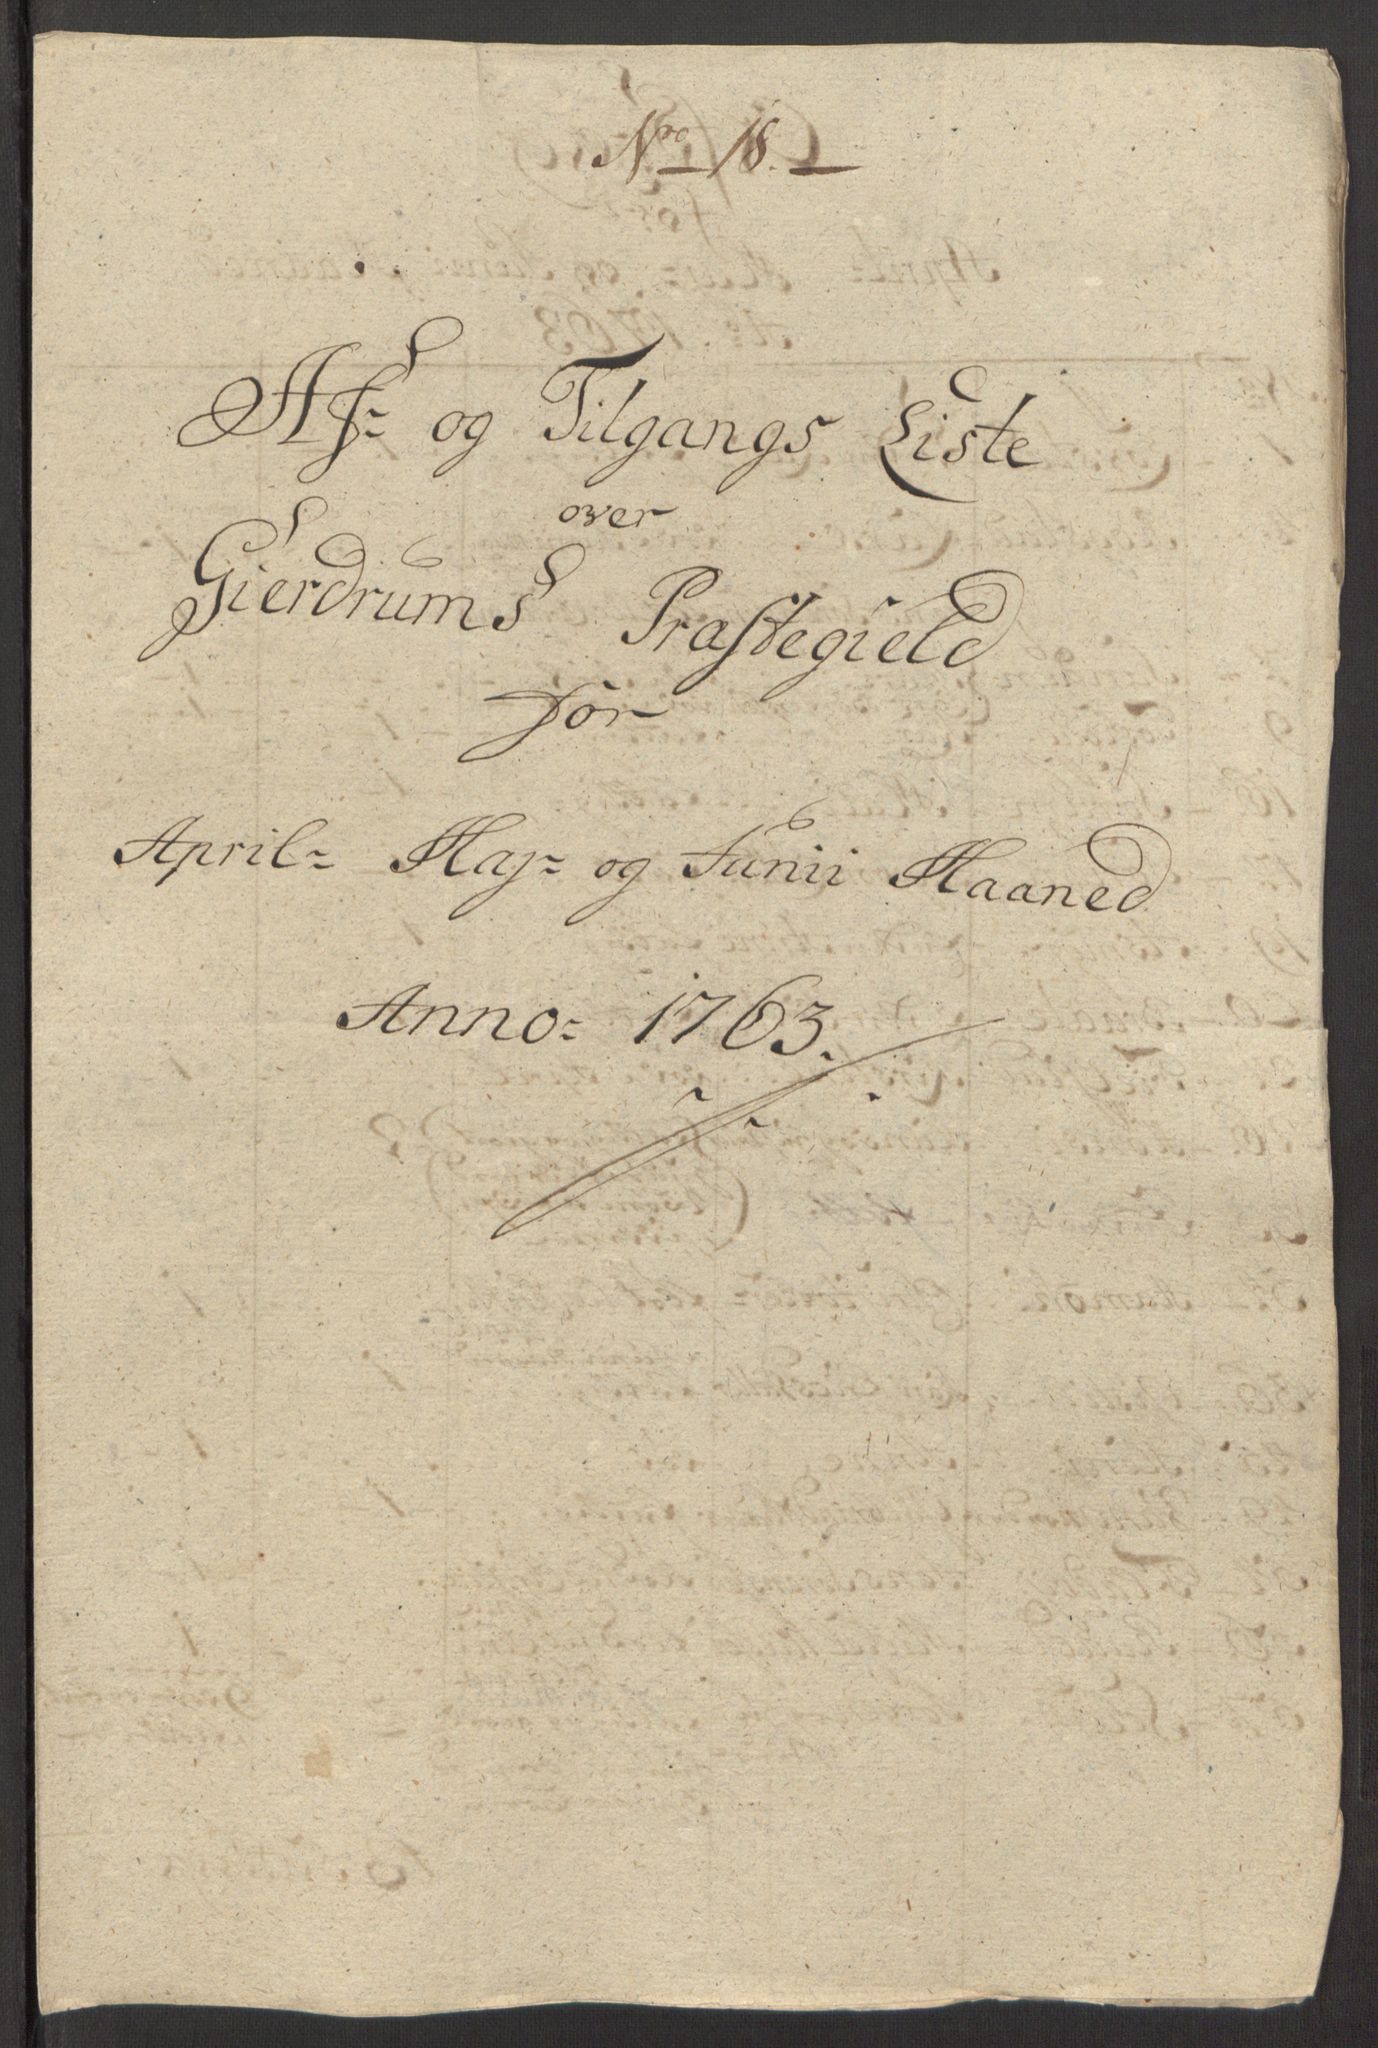 Nro 18.
Af- og Tilgangs Liste
over
Gierdrums Præstegield
for
April- Maj- og Junii Maaned
Anno- 1763.